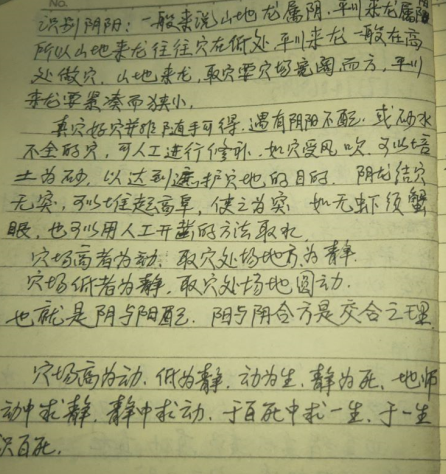 No.
识别阴阳：一般来说山地龙属阴，平川来龙属阳
所以山地来龙往往穴在低处，平川来龙一般在高
处做穴，山地来龙，取穴要穴场宽阔而方，平川
来龙要紧凑而狭小。
真穴好穴并非随手可得，遇有阴阳不配，或砂水
不全的穴，可人工进行修补，如穴受风吹，可以培
土为砂，以达到遮护穴地的目的，阴龙结穴
无突，可以堆起高阜，使之为突，如无虾须蟹
眼，也可以用人工开凿的方法取水，
穴场高者为动，取穴处场地方为静，
穴场低者为静，取穴处场地圆动，
也就是阴与阳配，阳与阴合方是交合之理
穴场高为动，低为静，动为生，静为死，地师
动中求静，静中求动，于百死中求一生，于一生
识百死，